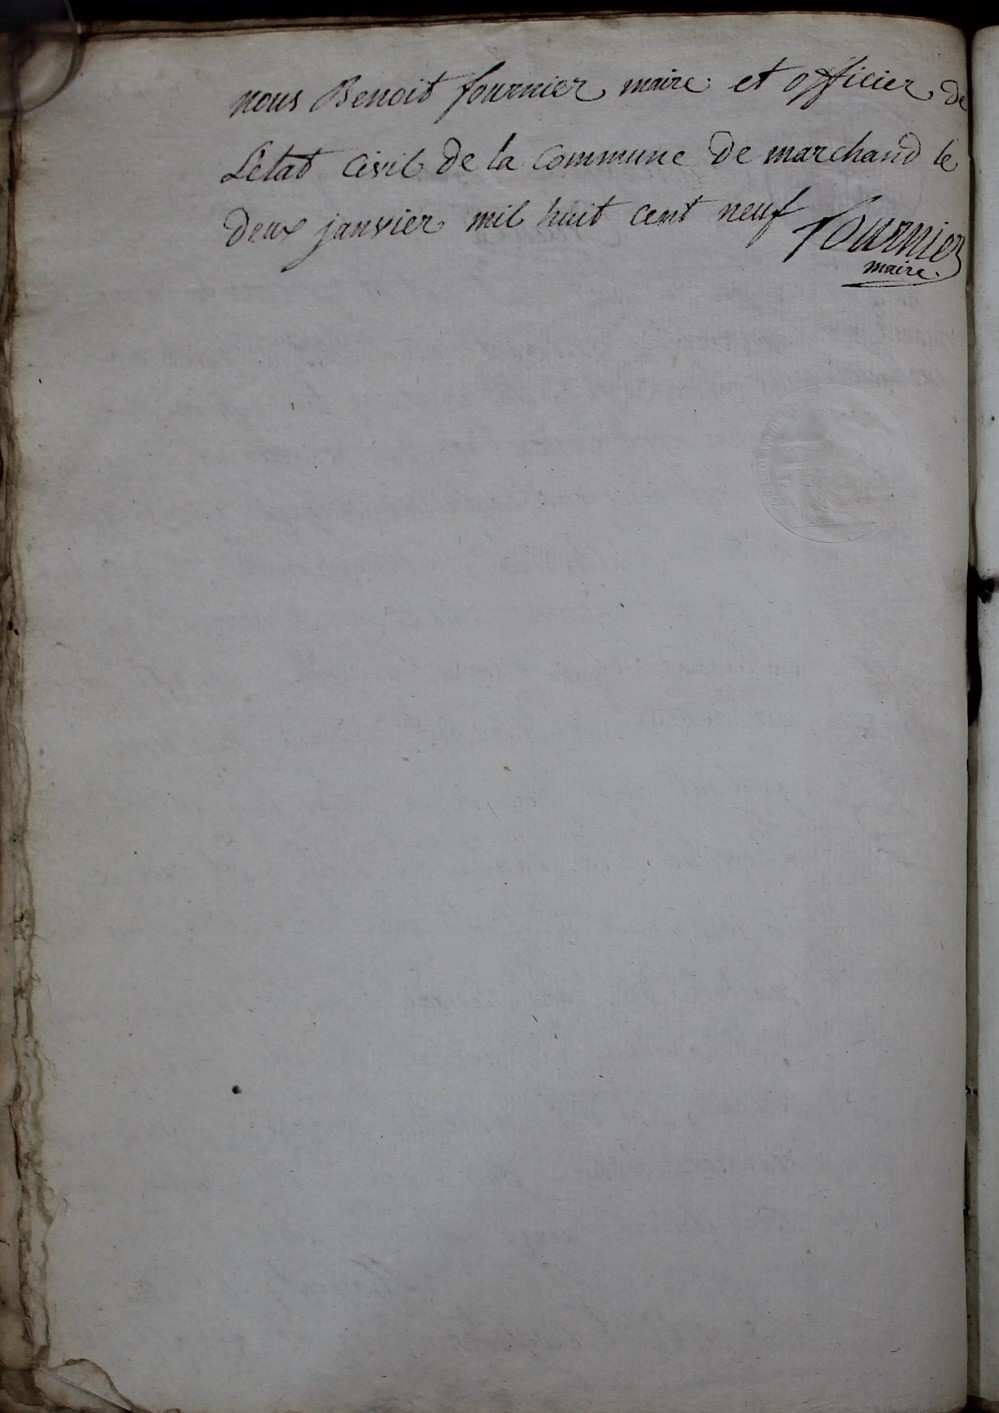 nous Benoit fournier maire et officier de
L'etat civil de la commune de marchand le
deux janvier mil huit cent neuf
fournier
maire